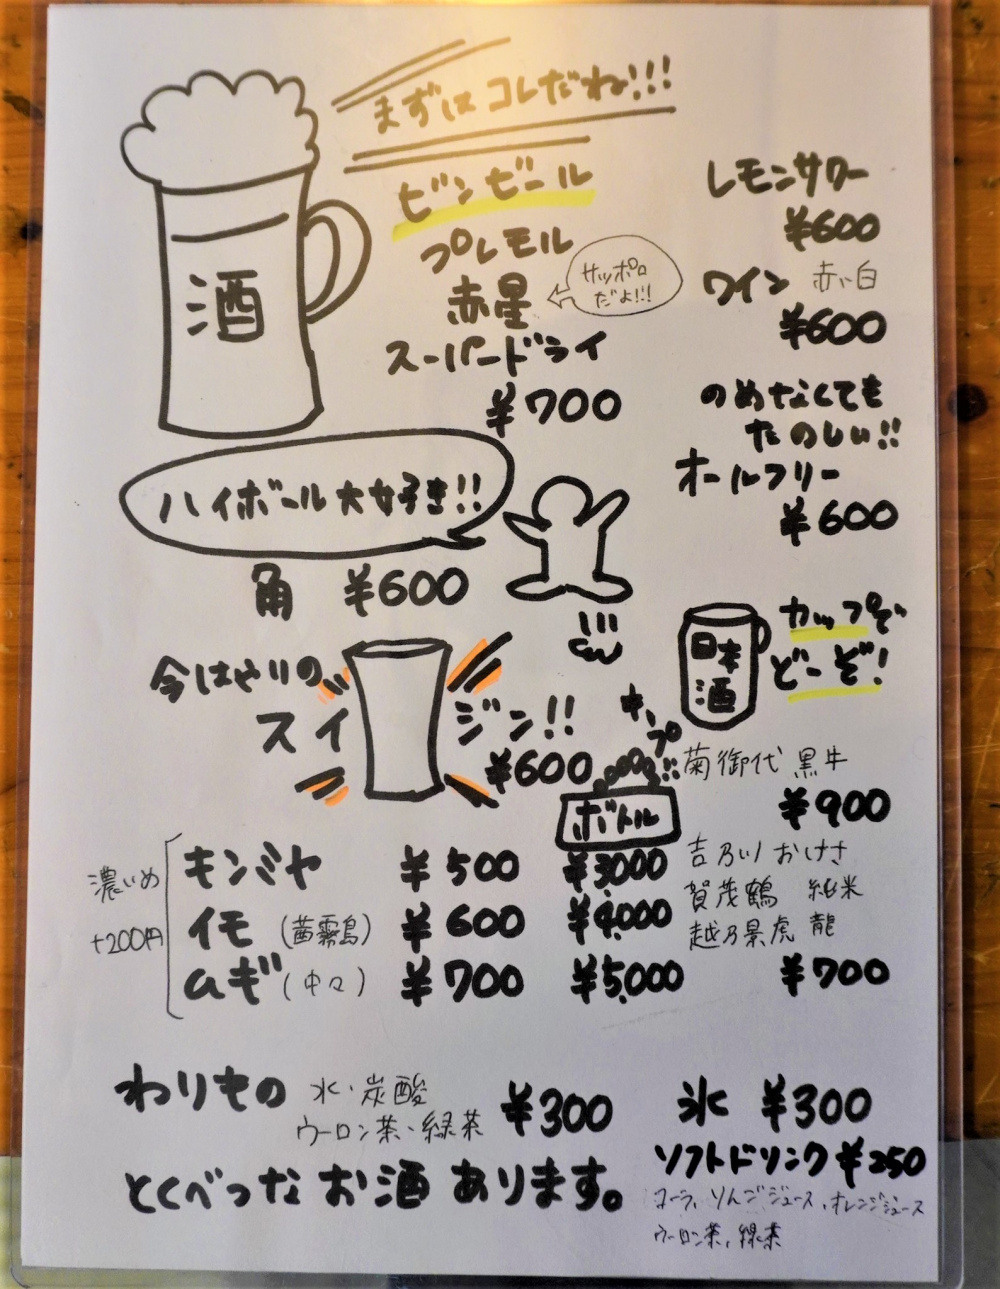 まずはコレだね!!!
ビンビール
プレモル
赤星
サッポロ
だよ!!!
スーパードライ
¥700
酒
レモンサワー
¥600
ワイン 赤い白
¥600
のめなくても
たのしい!!
オールフリー
¥600
ハイボール大好き!!
角 ¥600
今はやりの
スイ
ジン!!
¥600
日本
酒
カップで
どーぞ!
菊御代 黒牛
¥900
吉乃川 おけさ
賀茂鶴 純米
越乃景虎 龍
¥700
キープ!!
ボトル
濃いめ
+200円
キンミヤ ¥500 ¥3,000
イモ(茜霧島) ¥600 ¥4,000
ムギ(中々) ¥700 ¥5,000
わりもの 水・炭酸
ウーロン茶・緑茶 ¥300
氷 ¥300
ソフトドリンク ¥250
コーラ、りんごジュース、オレンジジュース
ウーロン茶、緑茶
とくべつな お酒 あります。